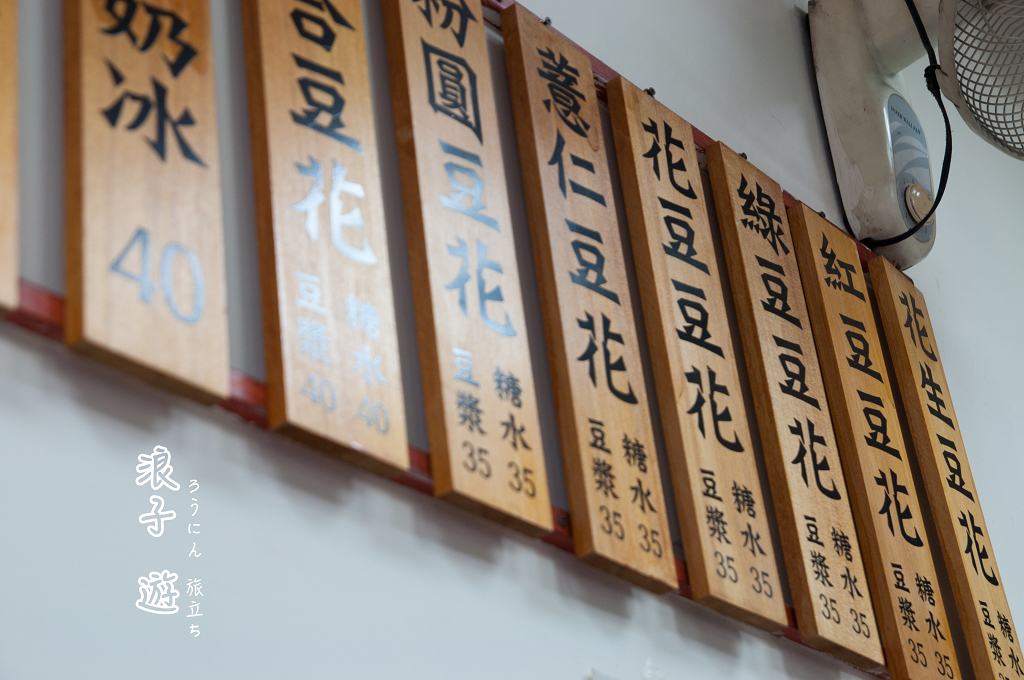 花生豆花
糖水
豆漿
紅豆豆花
糖水 35
豆漿 35
綠豆豆花
糖水 35
豆漿 35
花豆豆花
糖水 35
豆漿 35
薏仁豆花
糖水 35
豆漿 35
粉圓豆花
糖水 35
豆漿 35
合豆花
糖水 40
豆漿 40
奶冰 40
浪子 遊
ろうにん 旅立ち